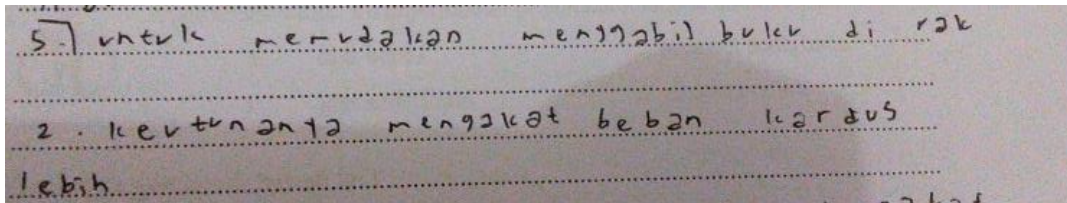 5.) untuk memudakan menggabil buku di rak
2. keutunanya mengakat beban kardus
lebih